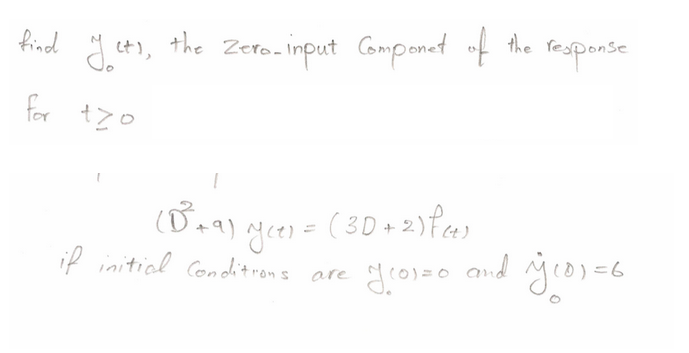 find y₀(t), the Zero-input Componet of the response
for t ≥ 0
(D²+9) y(t) = (3D+2) f(t)
if initial Conditions are y₀(0)=0 and ẏ₀(0)=6